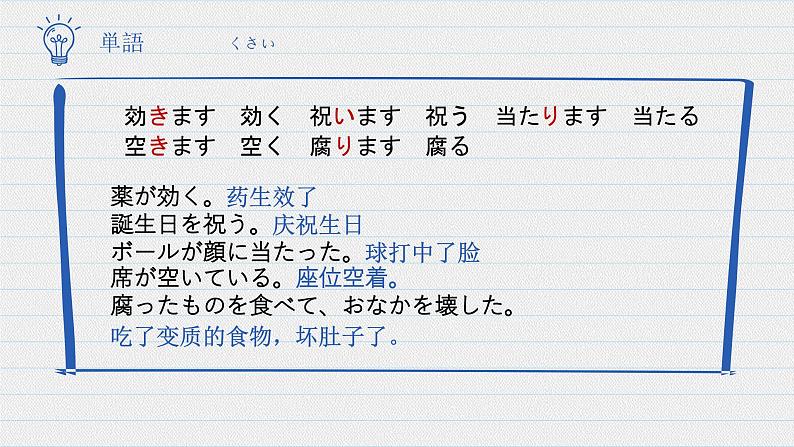 単語 くさい
効きます 効く 祝います 祝う 当たります 当たる
空きます 空く 腐ります 腐る
薬が効く。药生效了
誕生日を祝う。庆祝生日
ボールが顔に当たった。球打中了脸
席が空いている。座位空着。
腐ったものを食べて、おなかを壊した。
吃了变质的食物，坏肚子了。